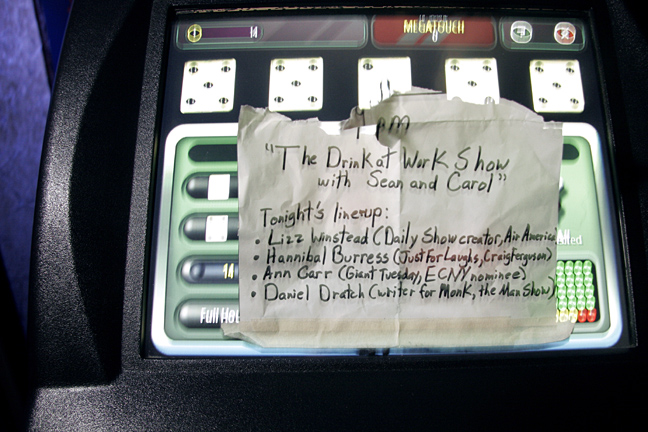 14
MEGATOUCH
7 pm
"The Drink at Work Show
with Sean and Carol"
Tonight's lineup:
• Lizz Winstead (Daily Show creator, Air America
• Hannibal Burress (Just For Laughs, Craig Ferguson)
• Ann Carr (Giant Tuesday, ECNY nominee)
• Daniel Dratch (writer for Monk, the Man Show)
14
Full Hou